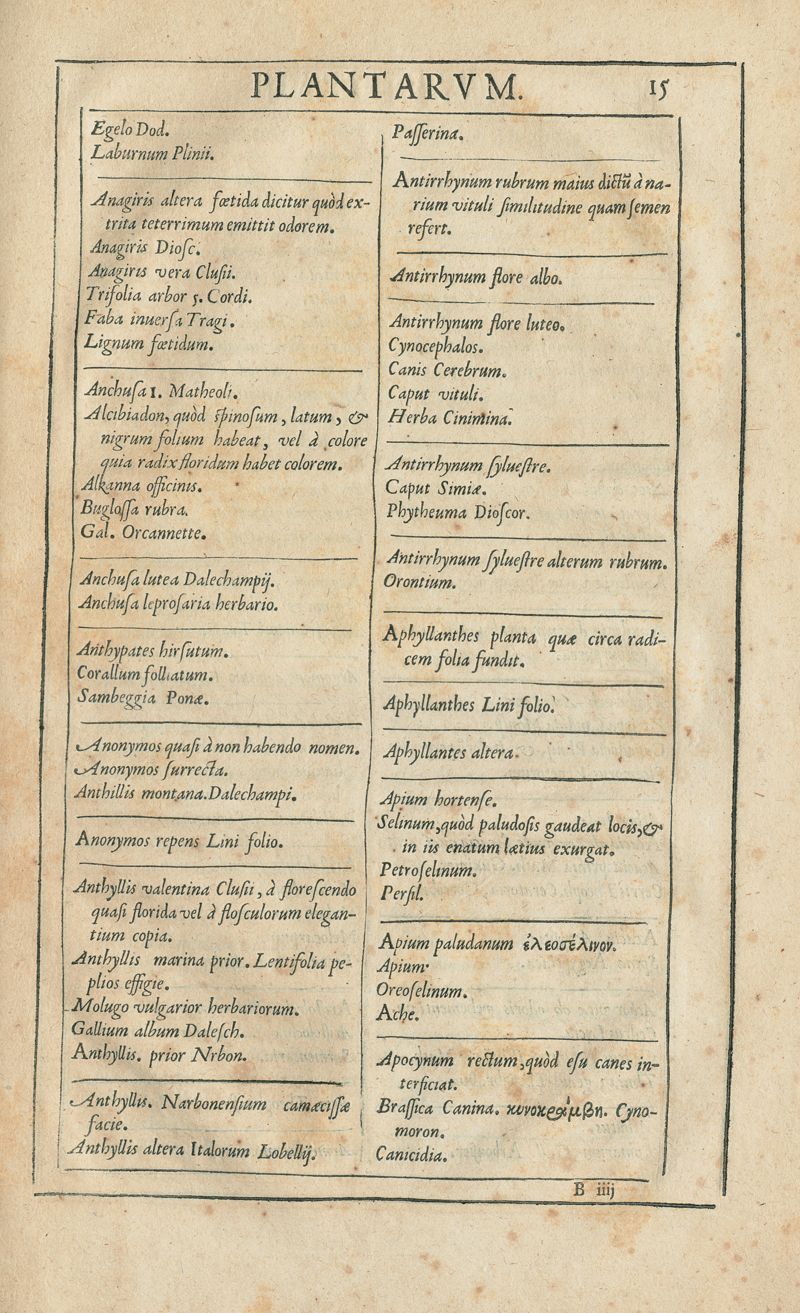 PLANTARVM.
15
Egelo Dod.
Laburnum Plinii.
Anagiris altera fœtida dicitur quòd ex-
trita teterrimum emittit odorem.
Anagiris Dioſc.
Anagiris vera Cluſii.
Trifolia arbor 5. Cordi.
Faba inuerſa Tragi.
Lignum fœtidum.
Anchuſa 1. Matheoli.
Alcibiadon, quòd ſpinoſum, latum, &
nigrum folium habeat, vel à colore
quia radix floridum habet colorem.
Alkanna officinis.
Bugloſſa rubra.
Gal. Orcannette.
Anchuſa lutea Dalechampij.
Anchuſa leproſaria herbario.
Anthypates hirſutum.
Corallum foliatum.
Sambeggia Ponæ.
Anonymos quaſi à non habendo nomen.
Anonymos ſurrecta.
Anthillis montana. Dalechampi.
Anonymos repens Lini folio.
Anthyllis valentina Cluſii, à floreſcendo
quaſi florida vel à floſculorum elegan-
tium copia.
Anthyllis marina prior. Lentifolia pe-
plios effigie.
Molugo vulgarior herbariorum.
Gallium album Daleſch.
Anthyllis. prior Nrbon.
Anthyllis. Narbonenſium camæciſſæ
facie.
Anthyllis altera Italorum Lobellij.
Paſſerina.
Antirrhynum rubrum maius dictũ à na-
rium vituli ſimilitudine quam ſemen
refert.
Antirrhynum flore albo.
Antirrhynum flore luteo.
Cynocephalos.
Canis Cerebrum.
Caput vituli.
Herba Cinimina.
Antirrhynum ſylueſtre.
Caput Simiæ.
Phytheuma Dioſcor.
Antirrhynum ſylueſtre alterum rubrum.
Orontium.
Aphyllanthes planta quæ circa radi-
cem folia fundit.
Aphyllanthes Lini folio.
Aphyllantes altera.
Apium hortenſe.
Selinum, quòd paludoſis gaudeat locis, &
in iis enatum lætius exurgat.
Petroſelinum.
Perſil.
Apium paludanum ἐλεοσέλινον.
Apium.
Oreoſelinum.
Ache.
Apocynum rectum, quòd eſu canes in-
terficiat.
Braſſica Canina. κυνοκράμβη. Cyno-
moron.
Canicidia.
B iiij